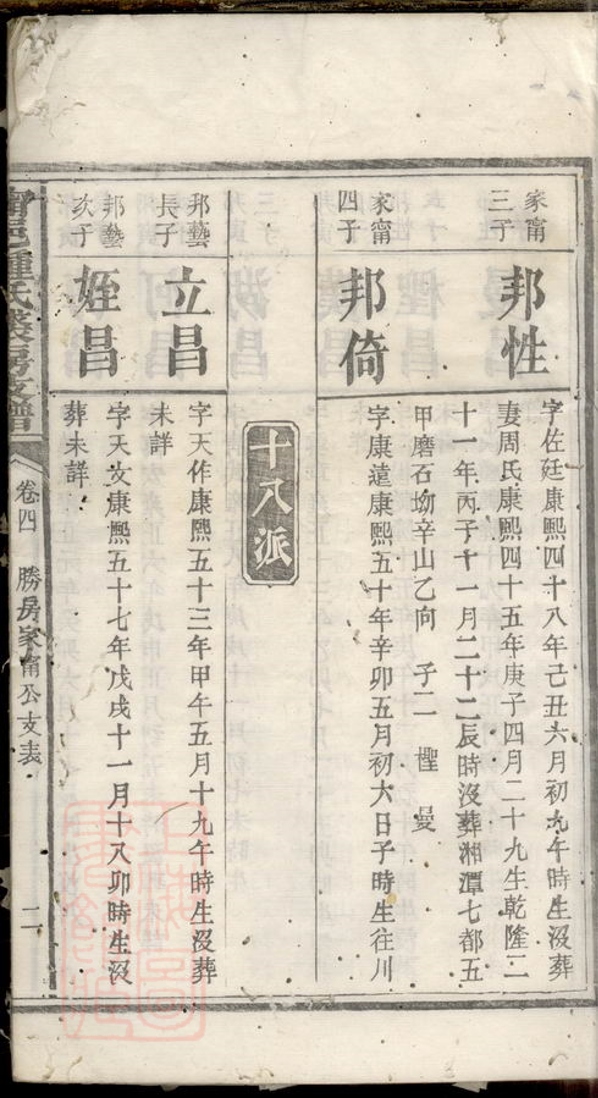 家甯
三子
邦性
字佐廷康熙四十八年己丑六月初九午時生沒葬
妻周氏康熙四十五年庚子四月二十九生乾隆二
十一年丙子十一月二十二辰時沒葬湘潭七都五
甲磨石坳辛山乙向 子二 檉 曼
家甯
四子
邦倚
字康遠康熙五十年辛卯五月初六日子時生往川
十八派
邦藝
長子
立昌
字天作康熙五十三年甲午五月十九午時生沒葬
未詳
邦藝
次子
姃昌
字天文康熙五十七年戊戌十一月十八卯時生沒
葬未詳
甯邑鍾氏茭房支譜
卷四 勝房家甯公支表
二